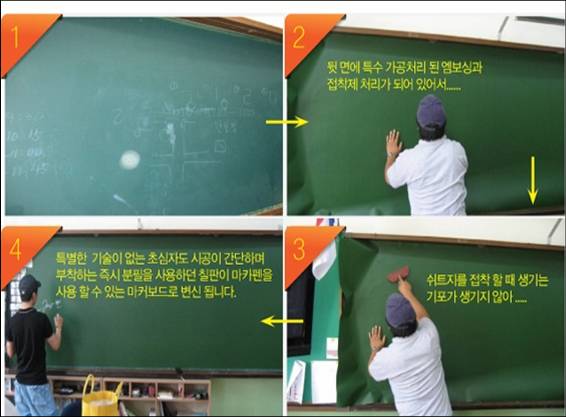 1
2
뒷 면에 특수 가공처리 된 엠보싱과
접착제 처리가 되어 있어서......
3
쉬트지를 접착 할 때 생기는
기포가 생기지 않아 .....
4
특별한 기술이 없는 초심자도 시공이 간단하며
부착하는 즉시 분필을 사용하던 칠판이 마카펜을
사용 할 수 있는 마커보드로 변신 됩니다.